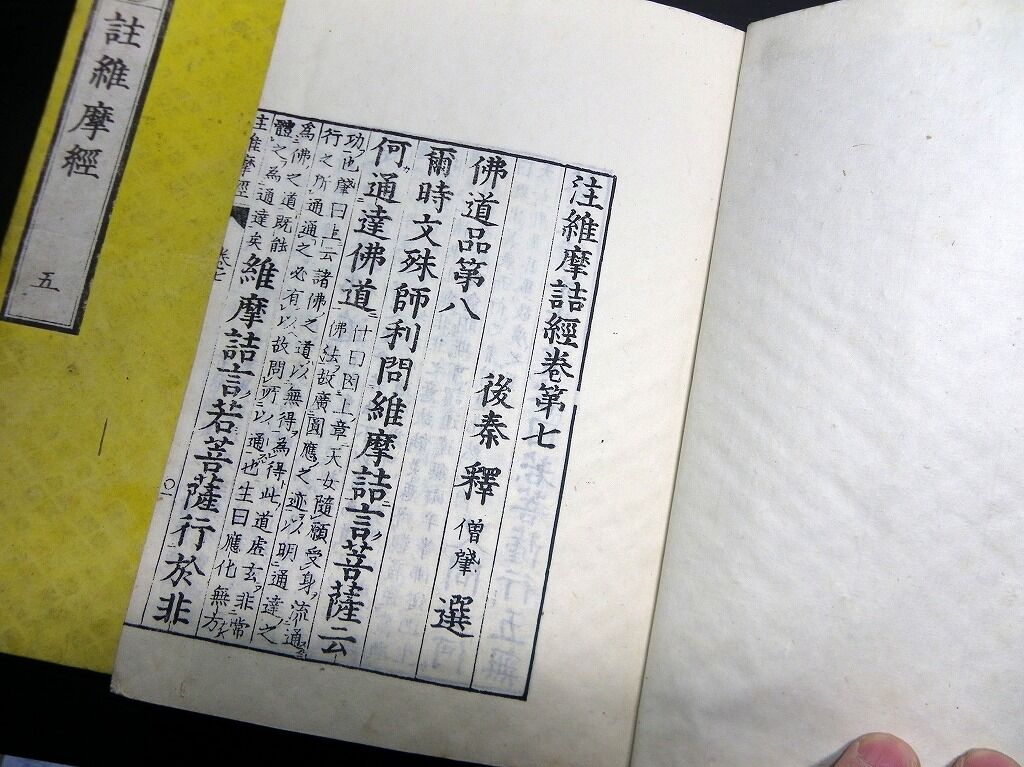 註維摩經
五
注維摩詰經卷第七
後秦釋僧肇選
佛道品第八
爾時文殊師利問維摩詰言菩薩云
何通達佛道
什曰因上章天女隨願受身流通
佛法故廣圓應之迹以明通達之
功也肇曰上云諸佛之道以無得為得此道虛玄非常
行之所通通之必有以故問所以通也生曰應化無方
為佛之道既能
體之為通達矣
維摩詰言若菩薩行於非
注維摩經
卷七